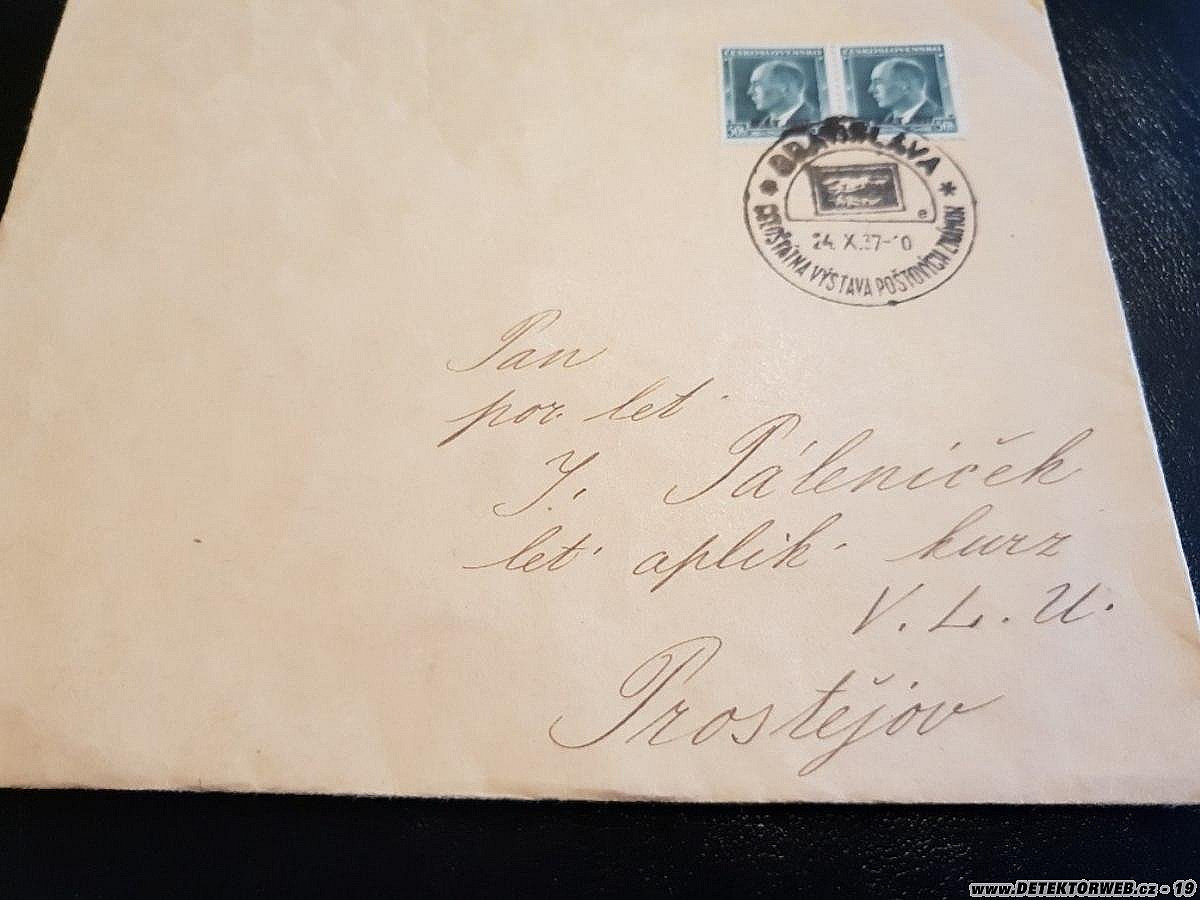 ČESKOSLOVENSKO ČESKOSLOVENSKO
50h 50h
BRATISLAVA
e
24. X. 37-10
CELOŠTÁTNA VÝSTAVA POŠTOVÝCH ZNÁMOK
Pan
por. let.
J. Páleníček
let. aplik. kurz
V. L. U.
Prostějov
www.DETEKTORWEB.cz - 19